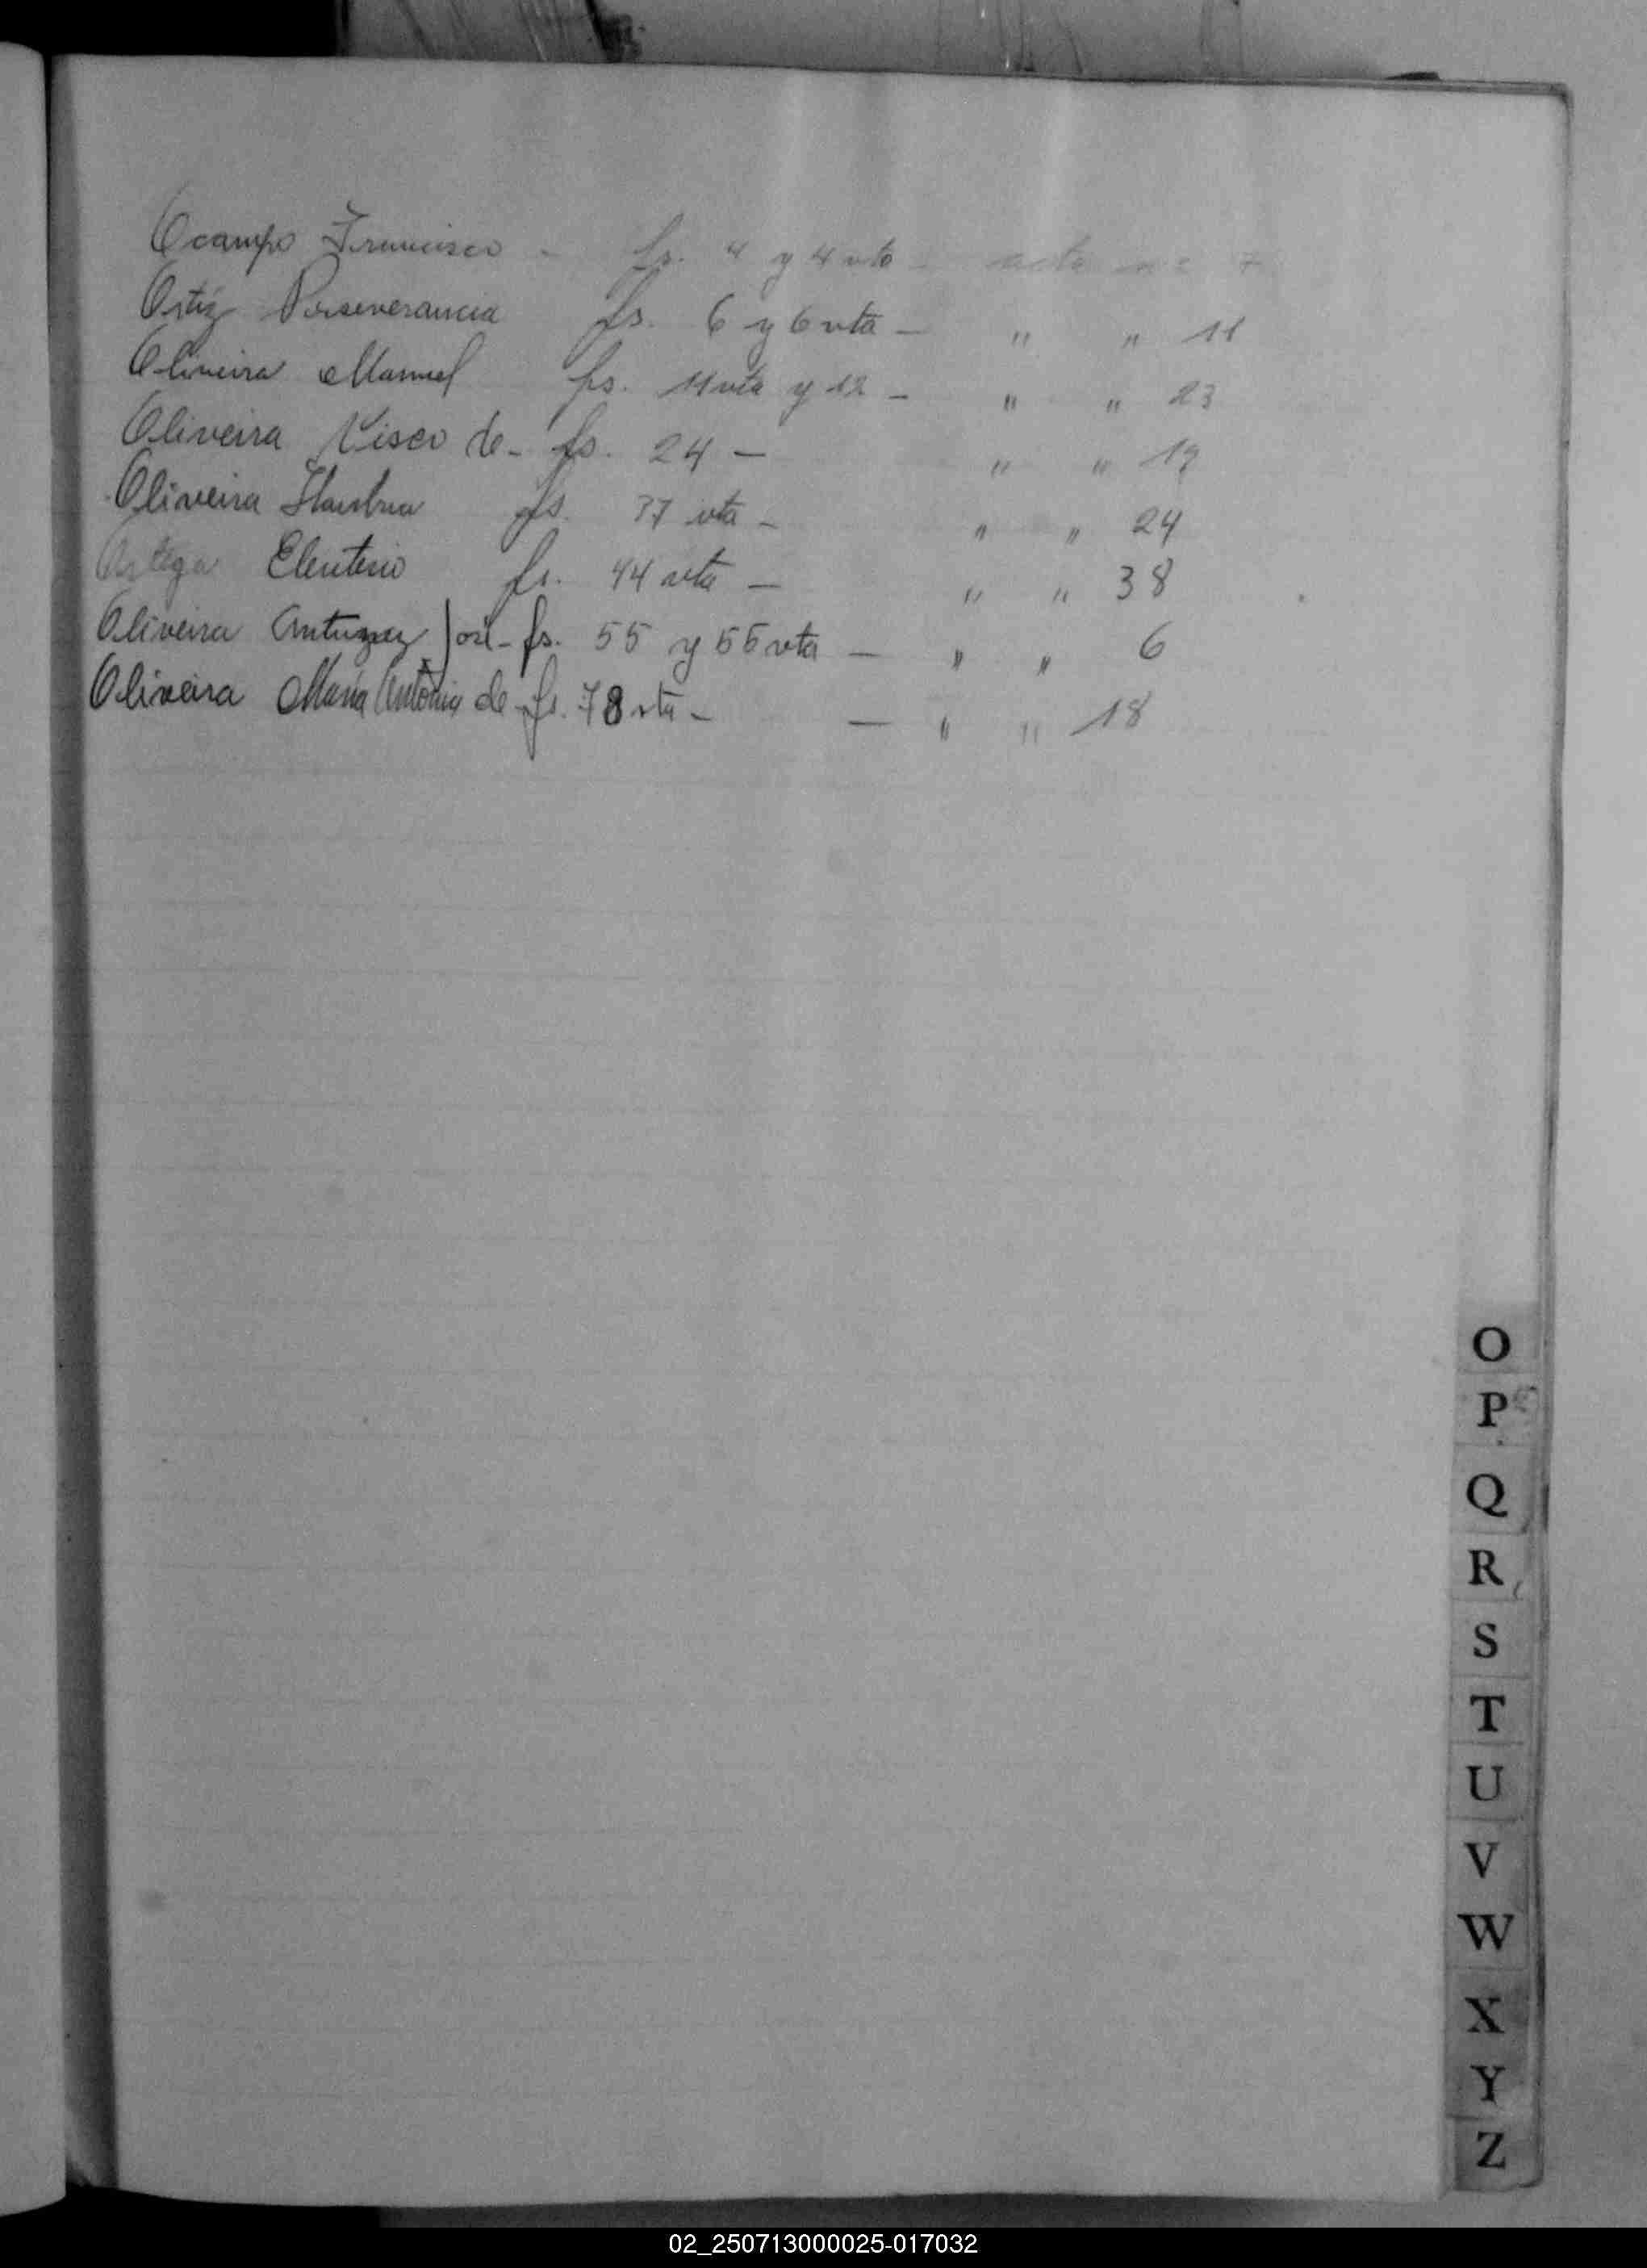 Ocampo Francisco - fs. 4 y 4 vta - acta nº 7
Ortiz Perseverancia fs. 6 y 6 vta - " " 11
Oliveira Manuel fs. 11 vta y 12 - " " 23
Oliveira de - fs. 24 - " " 19
Oliveira fs. 37 vta - " " 24
Ortega Eleuterio fs. 44 vta - " " 38
Oliveira Antunez José - fs. 55 y 55 vta - " " 6
Oliveira María Antonia de - fs. 78 vta - - " " 18
O
P
Q
R
S
T
U
V
W
X
Y
Z
02_250713000025-017032